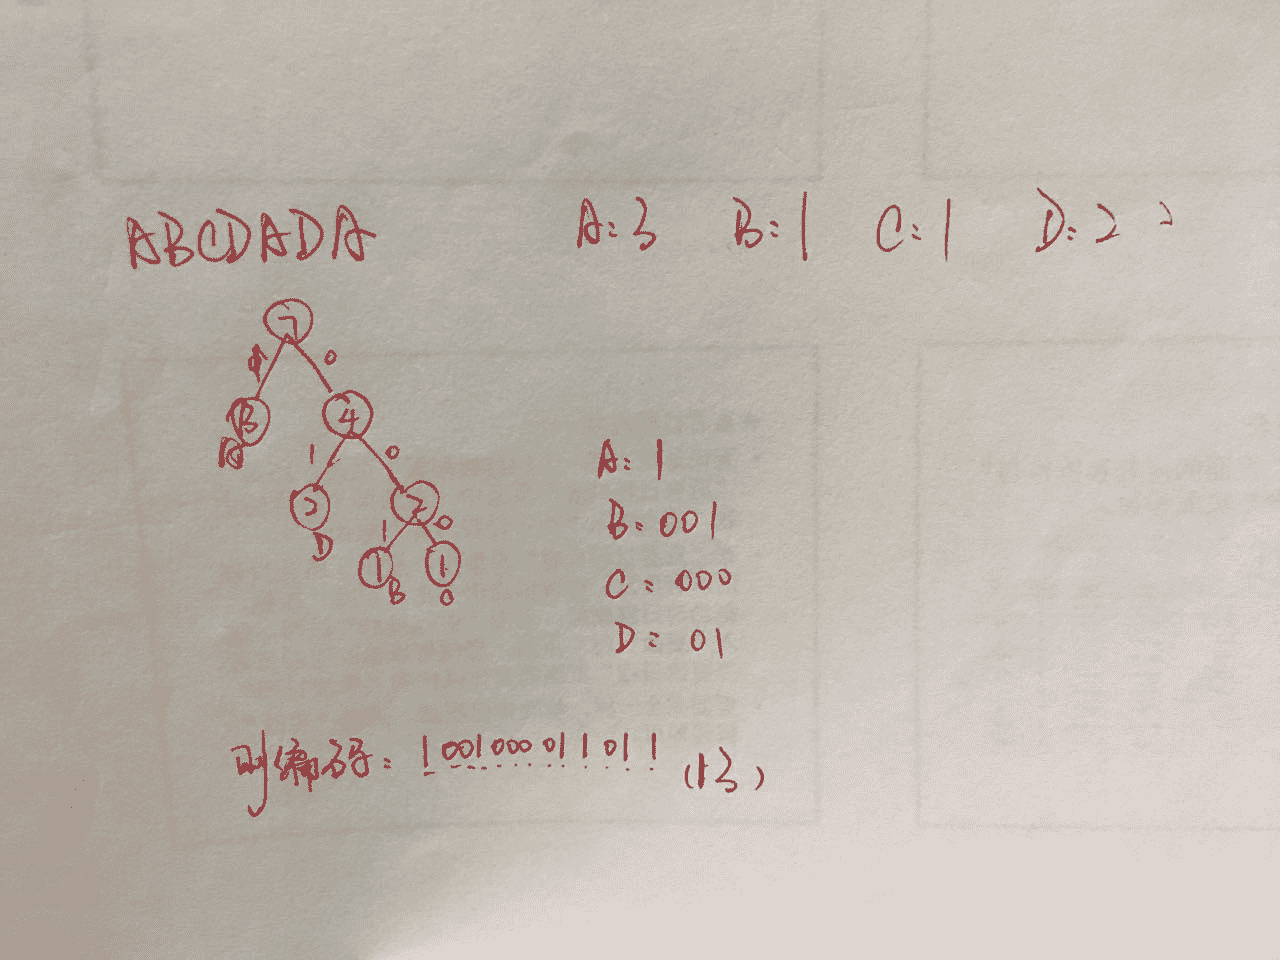 ABCDADA A:3 B:1 C:1 D:2
7
0
4
1 0
D 2
1 0
1 1
B
A: 1
B: 001
C: 000
D: 01
则编码: 1001000011011 (13)